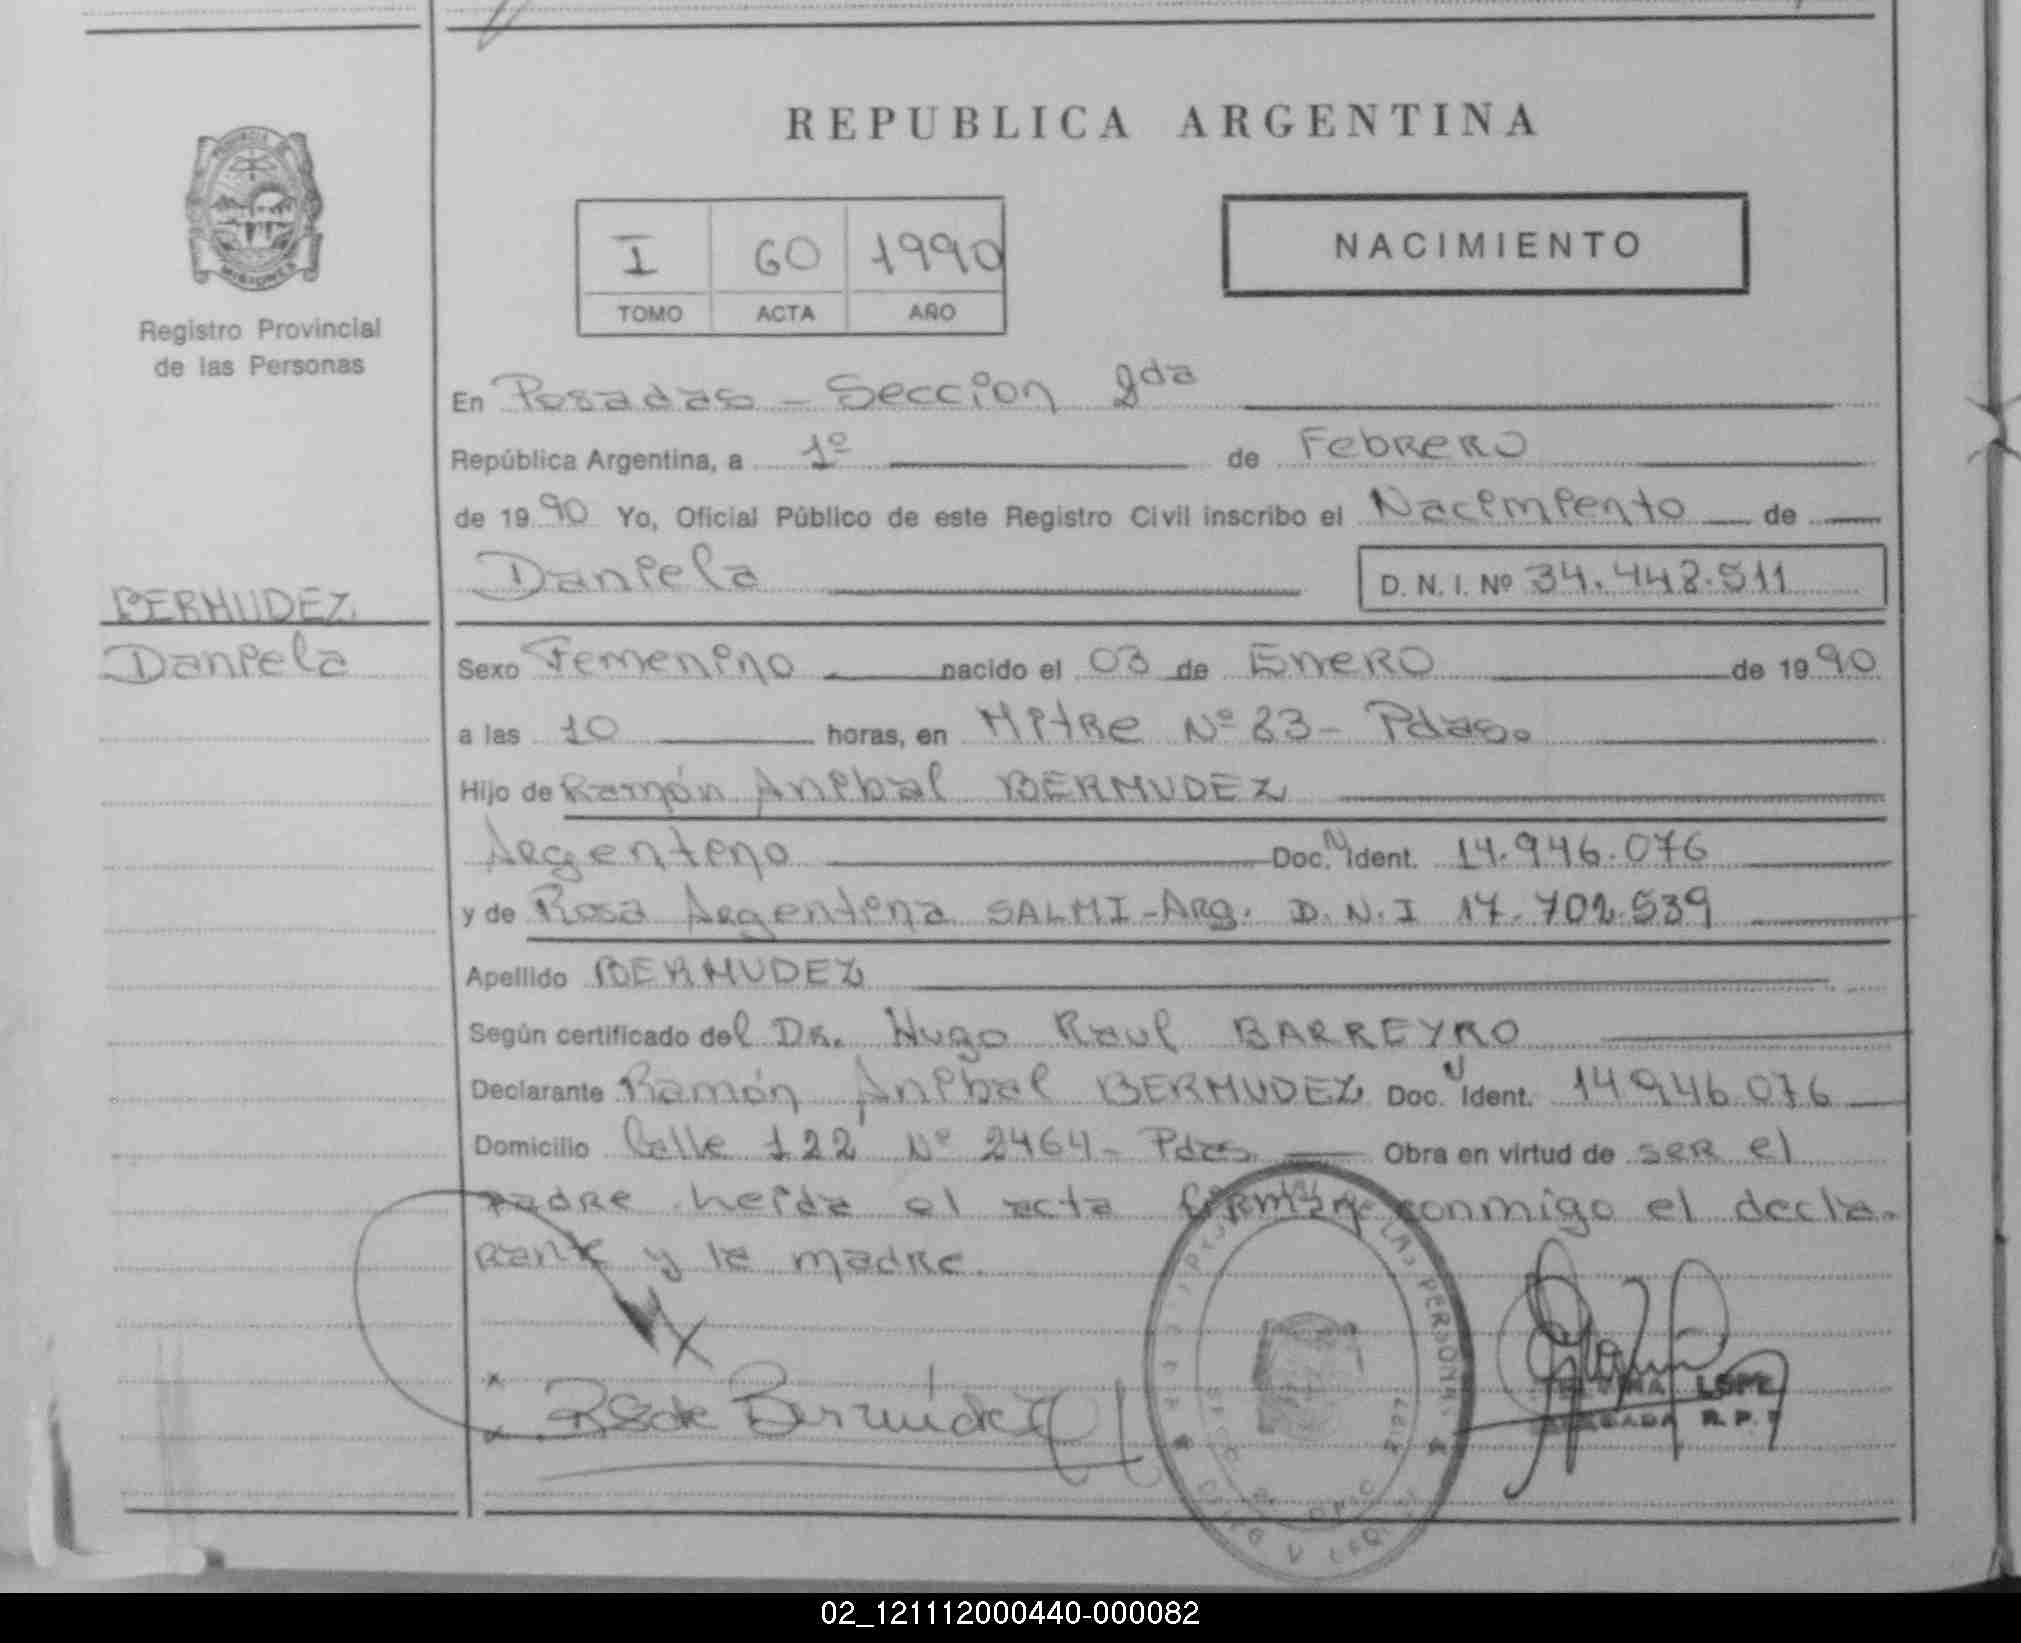 REPUBLICA ARGENTINA
I 60 1990
TOMO ACTA AÑO
NACIMIENTO
Registro Provincial
de las Personas
En Posadas - Seccion 2da
República Argentina, a 1º de Febrero
de 1990 Yo, Oficial Público de este Registro Civil inscribo el Nacimiento de
Daniela D. N. I. Nº 34.448.511
BERMUDEZ
Daniela
Sexo Femenino nacido el 03 de Enero de 1990
a las 10 horas, en Mitre Nº 23 - Pdas.
Hijo de Ramón Anibal BERMUDEZ
Argentino Doc. N Ident. 14.946.076
y de Rosa Argentina SALMI - Arg. D.N.I 17.702.539
Apellido BERMUDEZ
Según certificado del Dr. Hugo Raul BARREYRO
Declarante Ramón Anibal BERMUDEZ Doc. N Ident. 14946.076
Domicilio Calle 122 Nº 2464 - Pdas. Obra en virtud de ser el
padre heida el acta firman conmigo el decla-
rante y la madre.
R S de Bermúdez
LAS PERSONAS
LOPE
R. P.
02_121112000440-000082